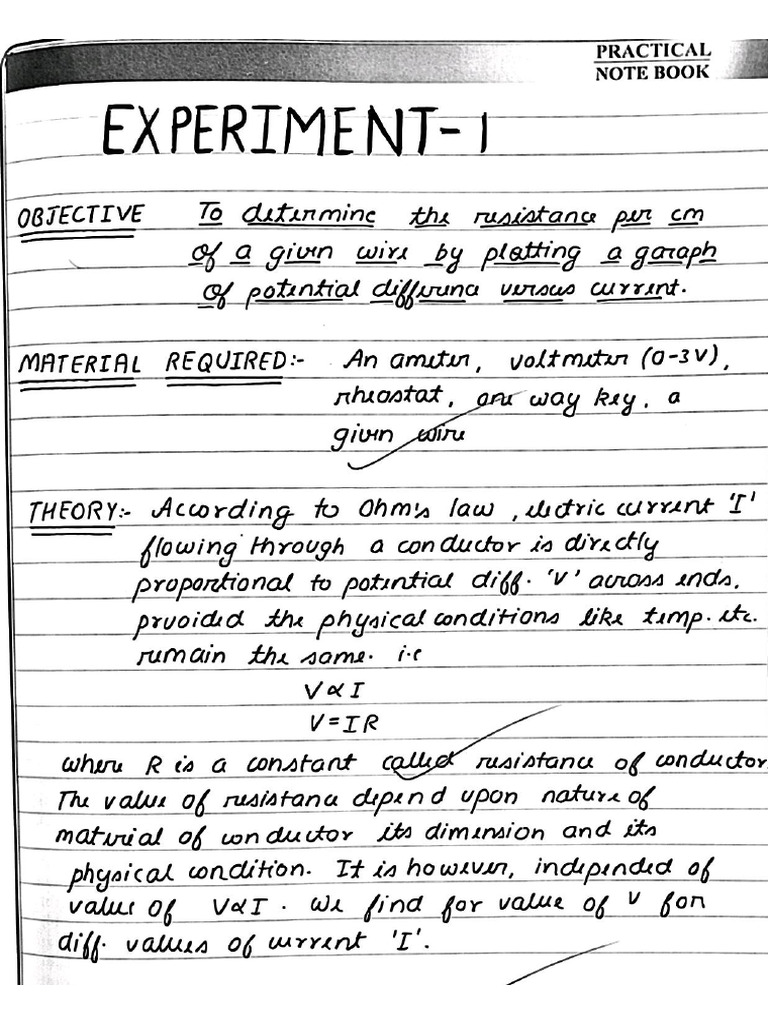 PRACTICAL
NOTE BOOK
EXPERIMENT-1
OBJECTIVE To determine the resistance per cm
of a given wire by plotting a garaph
of potential differena versus current.
MATERIAL REQUIRED:- An ameter, voltmeter (0-3V),
rheostat, one way key, a
given wire
THEORY:- According to Ohm's law, electric current 'I'
flowing through a conductor is directly
proportional to potential diff. 'V' across ends,
pruoided the physical conditions like temp. etc.
remain the same. i.e
V∝I
V=IR
where R is a constant called resistance of conductor
The value of resistana depend upon nature of
material of conductor its dimension and its
physical condition. It is however, independed of
value of V∝I. We find for value of V for
diff. values of current 'I'.